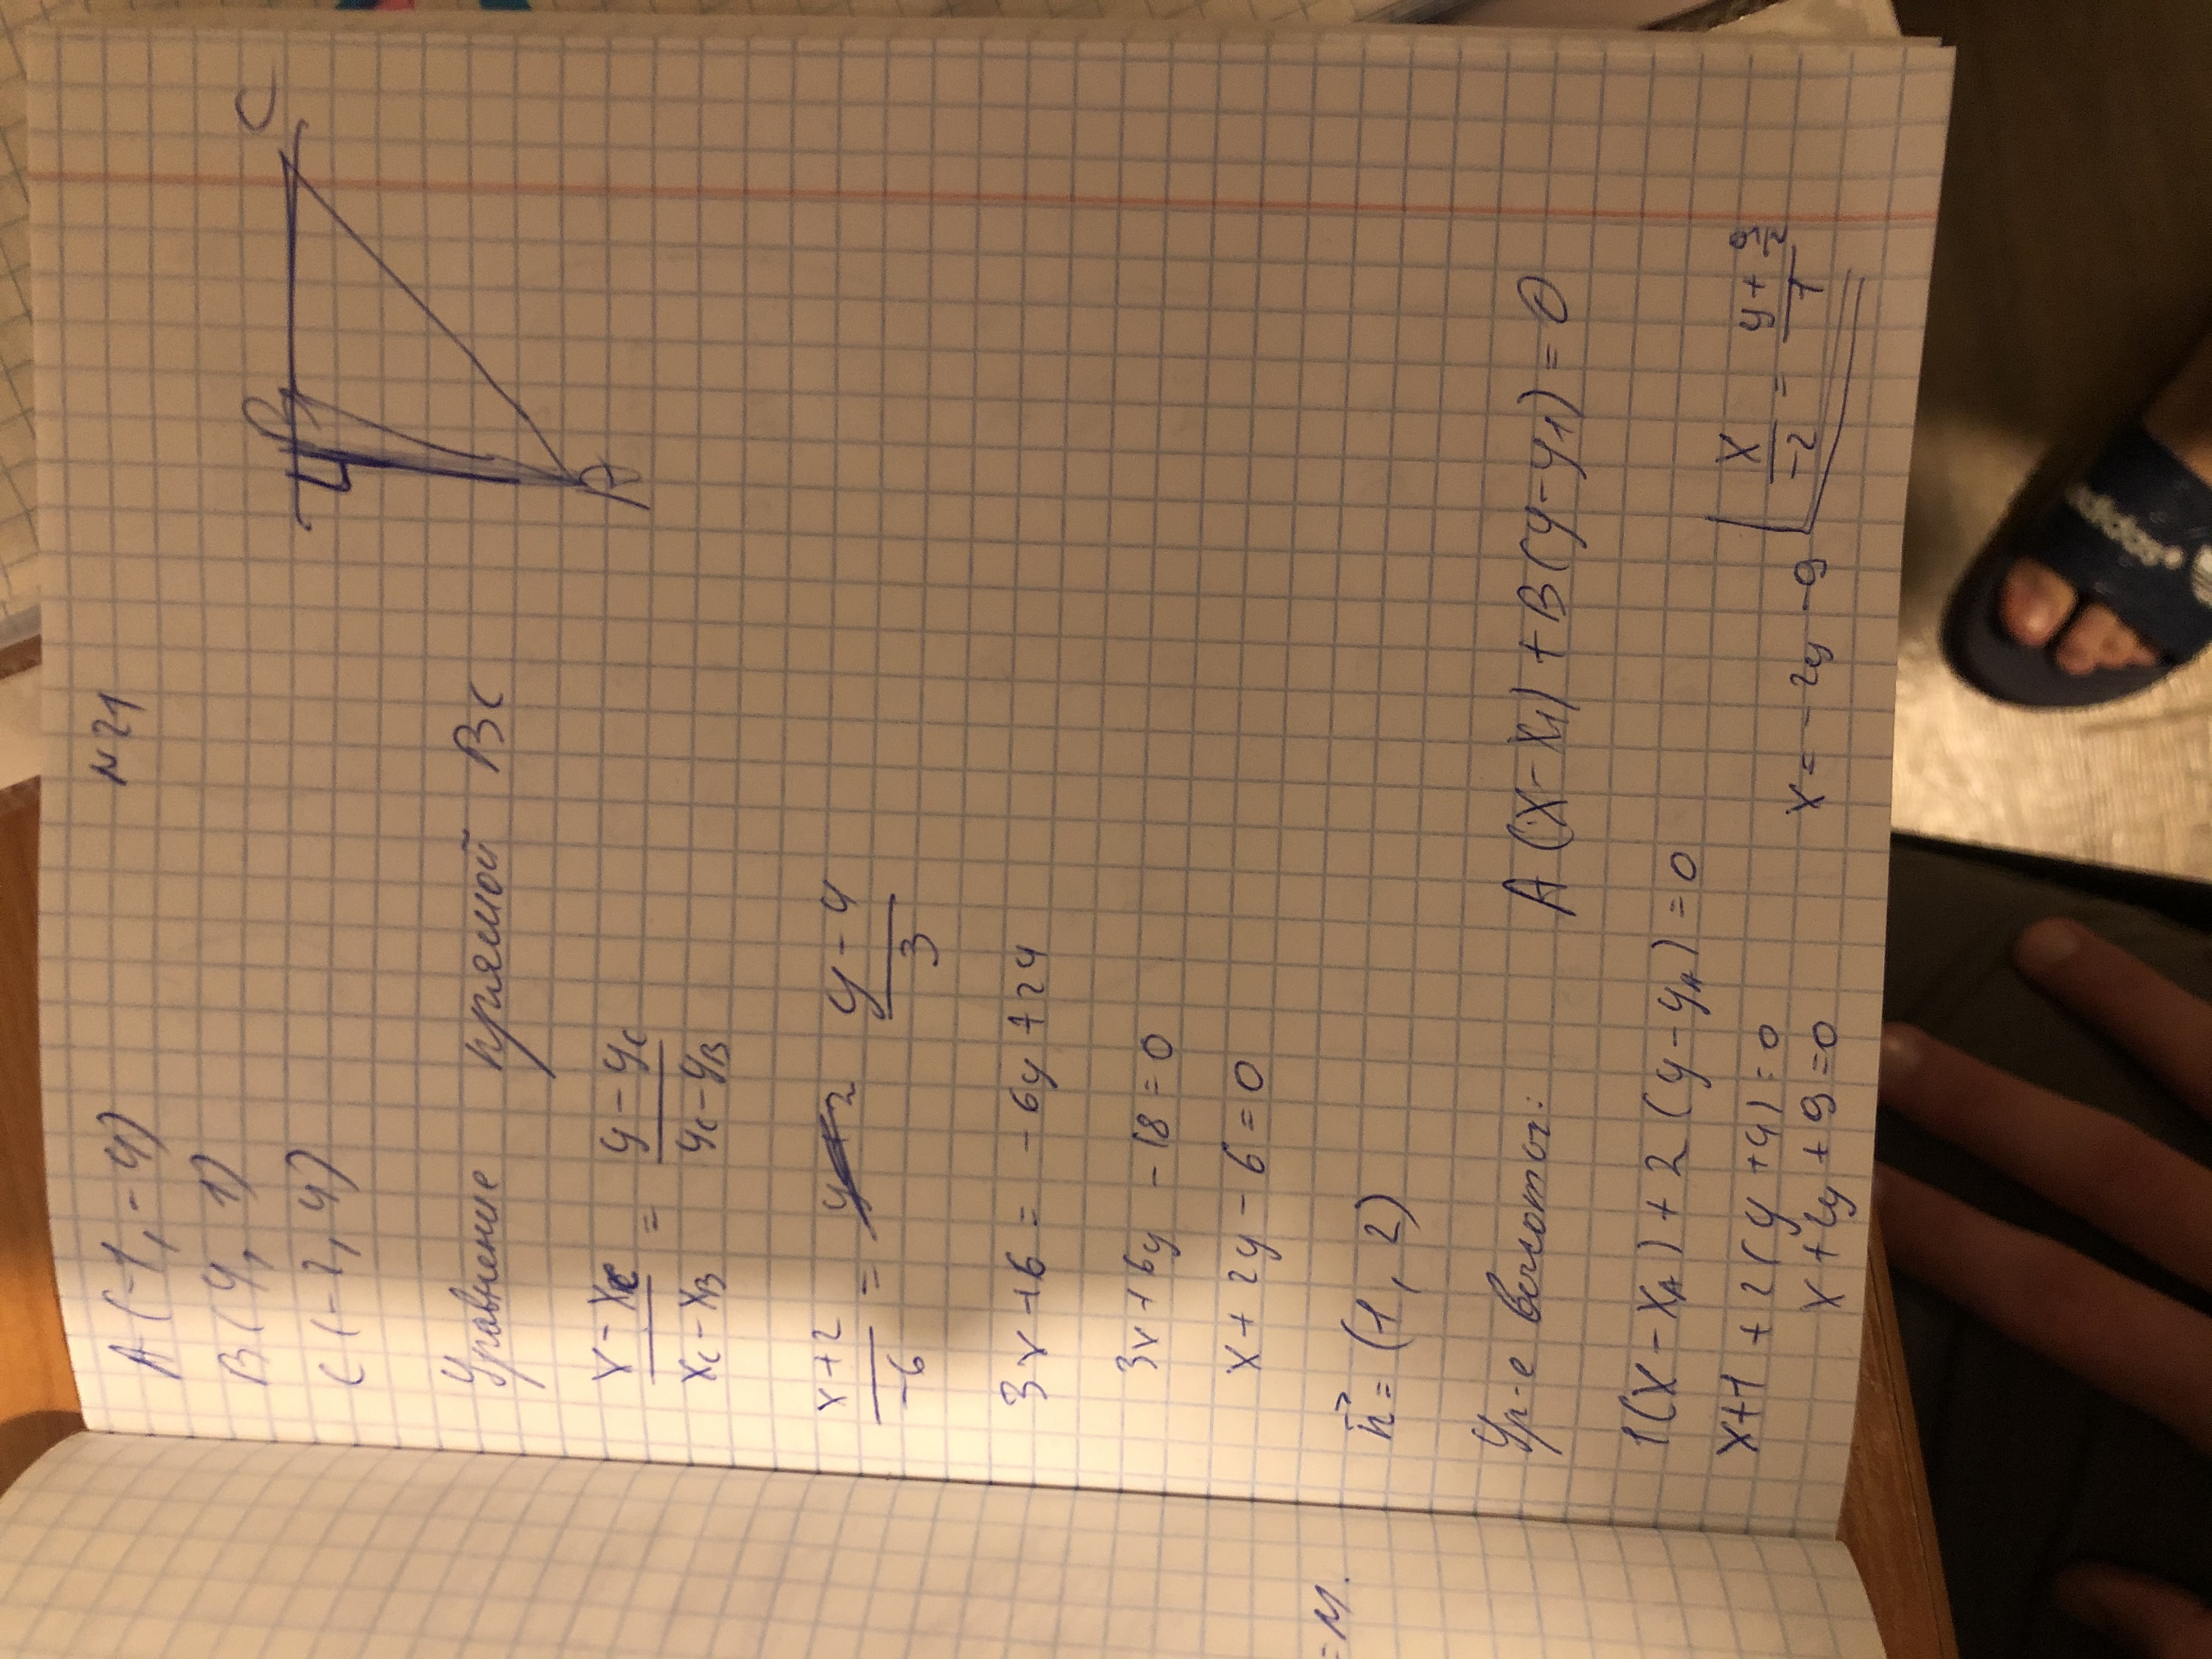 N21
A (-1, -4)
B (4, 1)
C (-2, 4)
C
A
Уравнение прямой BC
x - xc / xc - xB = y - yc / yc - yB
x + 2 / -6 = y - 4 / 3
3x + 6 = - 6y + 24
3x + 6y - 18 = 0
x + 2y - 6 = 0
n = (1, 2)
Ур-е высоты: A (x - x1) + B (y - y1) = 0
1 (x - xA) + 2 (y - yA) = 0
x + 1 + 2 (y + 4) = 0
x / -2 = y + 9/2 / 1
x + 2y + 9 = 0
x = - 2y - 9
= 4.
adidas